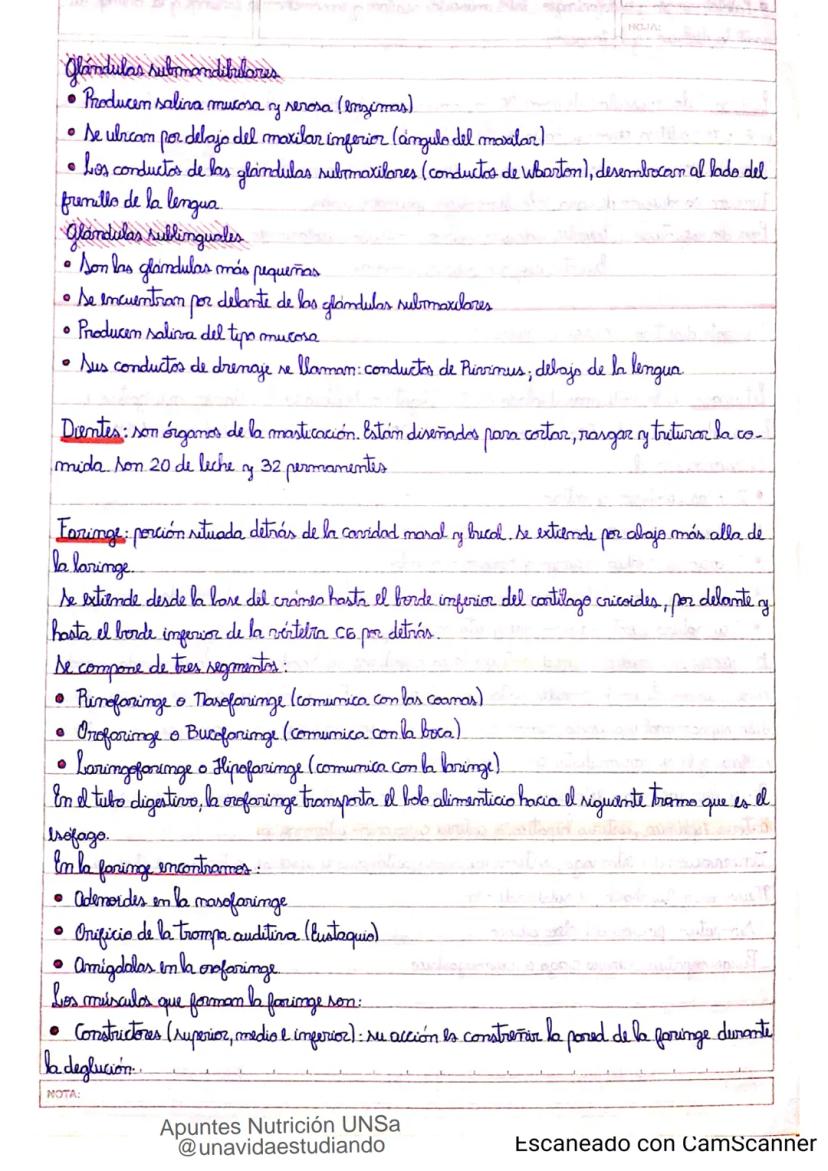 HOJA:
Glándulas submandibulares
• Producen saliva mucosa y serosa (enzimas)
• Se ubican por debajo del maxilar inferior (ángulo del maxilar)
• Los conductos de las glándulas submaxilares (conductos de Wharton), desembocan al lado del
frenillo de la lengua.
Glándulas sublinguales
• Son las glándulas más pequeñas
• Se encuentran por delante de las glándulas submaxilares
• Producen saliva del tipo mucosa
• Sus conductos de drenaje se llaman: conductos de Rivinnus; debajo de la lengua
Dientes: son órganos de la masticación. Están diseñados para cortar, rasgar y triturar la co-
mida. Son 20 de leche y 32 permanentes
Faringe: porción situada detrás de la cavidad nasal y bucal. Se extiende por abajo más alla de
la laringe.
Se extiende desde la base del cráneo hasta el borde inferior del cartílago cricoides, por delante y
hasta el borde inferior de la vértebra C6 por detrás.
Se compone de tres segmentos:
• Rinofaringe o Nasofaringe (comunica con las coanas)
• Orofaringe o Bucofaringe (comunica con la boca)
• Laringofaringe o Hipofaringe (comunica con la laringe)
En el tubo digestivo, la orofaringe transporta el bolo alimenticio hacia el siguiente tramo que es el
esófago.
En la faringe encontramos:
• Adenoides en la nasofaringe
• Orificio de la trompa auditiva (Eustaquio)
• Amígdalas en la orofaringe
Los músculos que forman la faringe son:
• Constrictores (superior, medio e inferior): su acción es constreñir la pared de la faringe durante
la deglución.
NOTA:
Apuntes Nutrición UNSa
@unavidaestudiando
Escaneado con CamScanner